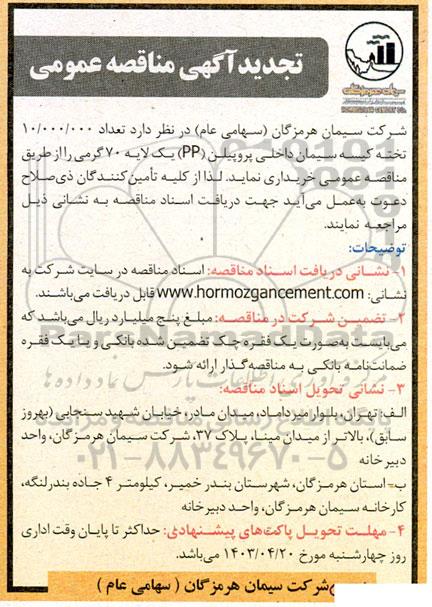 تجدید آگهی مناقصه عمومی
شرکت سیمان هرمزگان (سهامی عام) در نظر دارد تعداد ۱۰/۰۰۰/۰۰۰
تخته کیسه سیمان داخلی پروپیلن (PP) یک لایه ۷۰ گرمی را از طریق
مناقصه عمومی خریداری نماید. لذا از کلیه تأمین‌کنندگان ذی‌صلاح
دعوت به‌عمل می‌آید جهت دریافت اسناد مناقصه به نشانی ذیل
مراجعه نمایند.
توضیحات:
۱- نشانی دریافت اسناد مناقصه: اسناد مناقصه در سایت شرکت به
نشانی: www.hormozgancement.com قابل دریافت می‌باشند.
۲- تضمین شرکت در مناقصه: مبلغ پنج میلیارد ریال می‌باشد که
می‌بایست به‌صورت یک فقره چک تضمین شده بانکی و یا یک فقره
ضمانت‌نامه بانکی به مناقصه‌گذار ارائه شود.
۳- نشانی تحویل اسناد مناقصه:
الف: تهران، بلوار میرداماد، میدان مادر، خیابان شهید سنجابی (بهروز
سابق)، بالاتر از میدان مینا، پلاک ۳۷، شرکت سیمان هرمزگان، واحد
دبیرخانه
ب- استان هرمزگان، شهرستان بندر خمیر، کیلومتر ۴ جاده بندرلنگه،
کارخانه سیمان هرمزگان، واحد دبیرخانه
۴- مهلت تحویل پاکت‌های پیشنهادی: حداکثر تا پایان وقت اداری
روز چهارشنبه مورخ ۱۴۰۳/۰۴/۲۰ می‌باشد.
شرکت سیمان هرمزگان ( سهامی عام )
۰۲۱-۸۸۳۴۹۶۷۰-۵